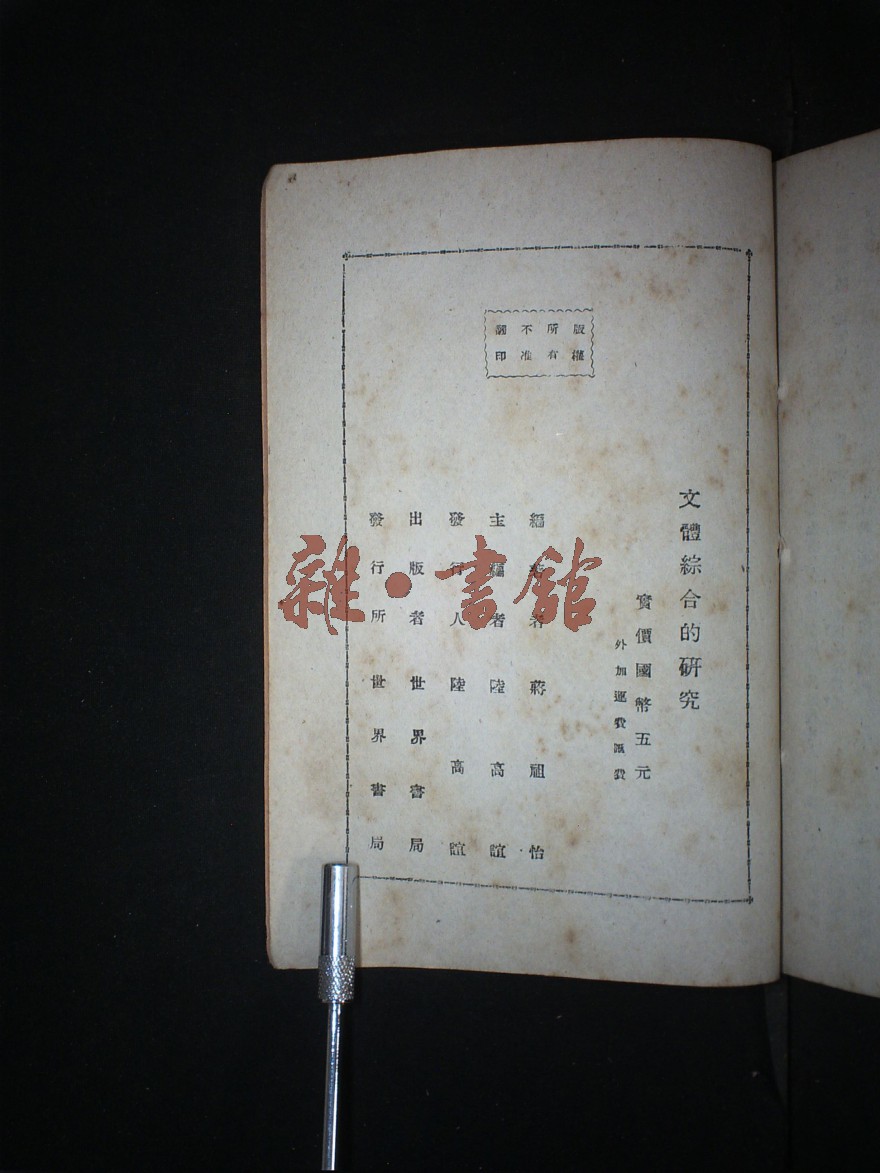 版權
所有
不准
翻印
文體綜合的研究
實價國幣五元
外加運費匯費
編著者 蔣祖怡
主編者 陸高誼
發行人 陸高誼
出版者 世界書局
發行所 世界書局
雜·書館